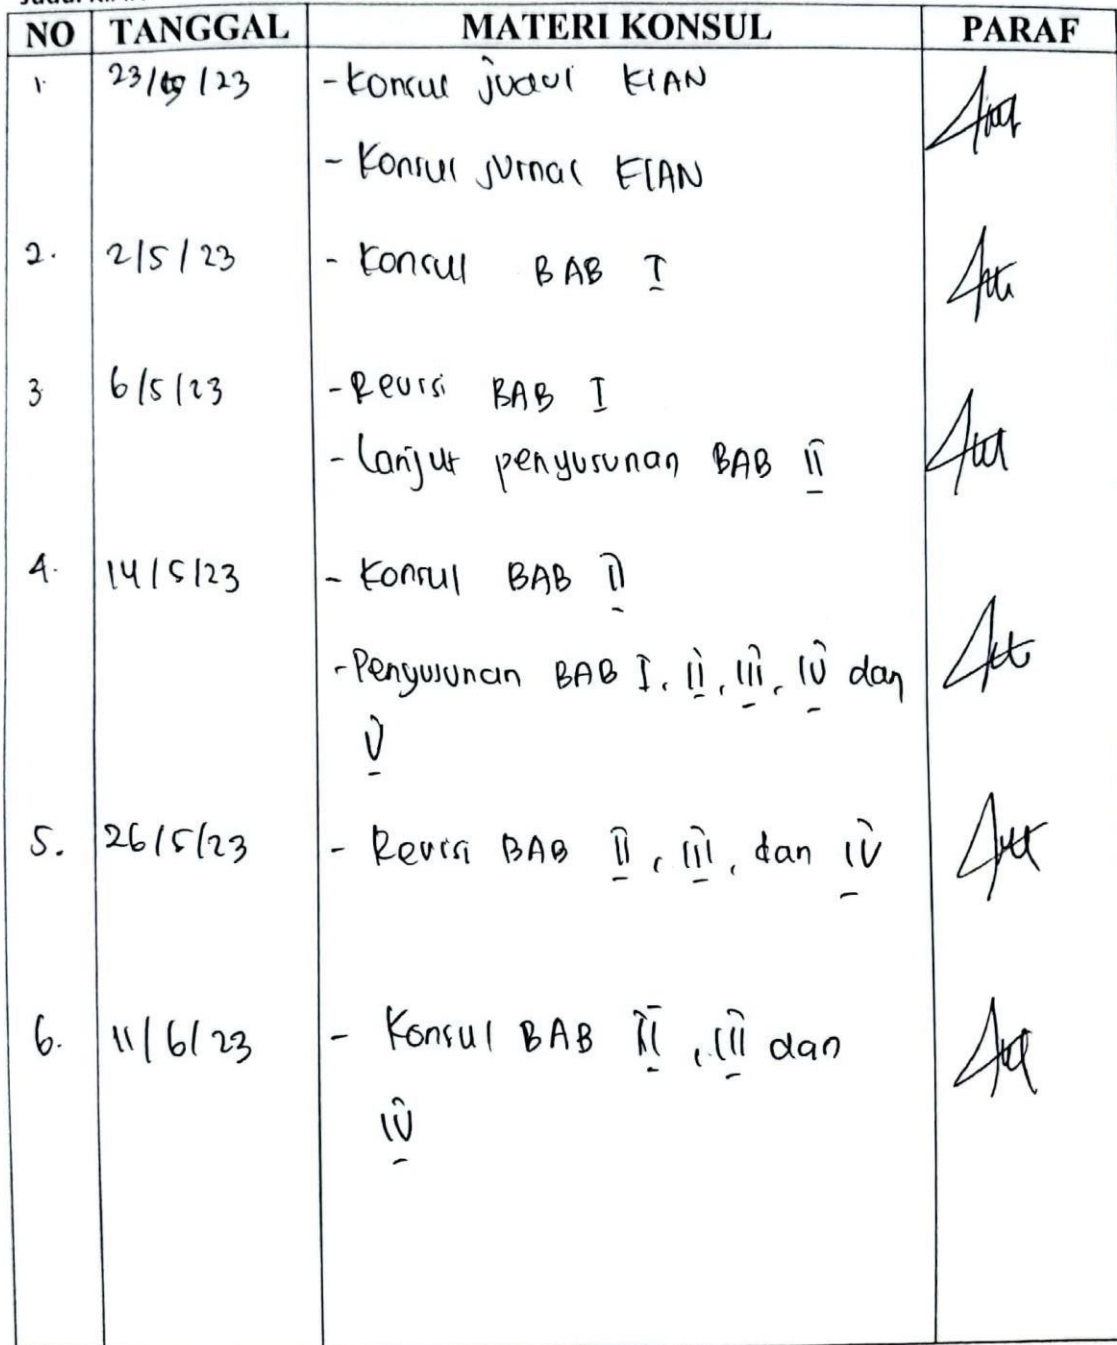 NO TANGGAL MATERI KONSUL PARAF
1. 23/ /23 - Konsul judul KIAN
- Konsul jurnal KIAN
2. 2/5/23 - Konsul BAB I
3 6/5/23 - Revisi BAB I
- Lanjut penyusunan BAB II
4. 14/5/23 - Konsul BAB II
- Penyusunan BAB I, II, III, IV dan
V
5. 26/5/23 - Revisi BAB II, III, dan IV
6. 11/6/23 - Konsul BAB II, III dan
IV